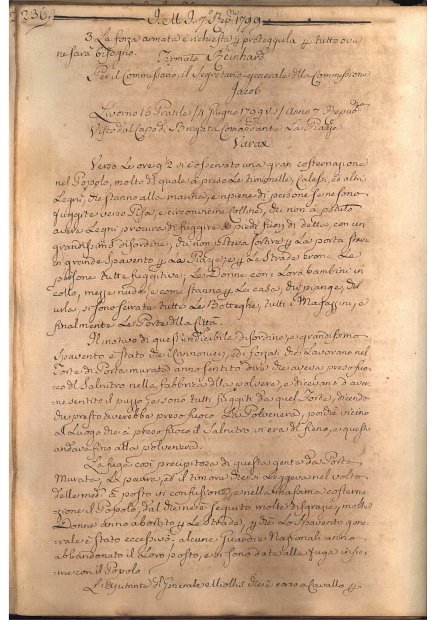 236.
J. M. J. 7.e Rep.ne 1799
3. La forza armata è richiesta di proteggerla p tutto ove
ne sarà bisogno.
Firmato Reinhard
Per il Commissario, il Segretario generale della Commissione
Jacob
Livorno 16 Pratile /4 Giugno 1799 v.s./ Anno 7 Repub.o
Visto dal Capo di Brigata Comandante La Piazza
Varax
Verso Le ore 9½ si è osservato una gran costernazione
nel Popolo, molto del quale à preso Le timonelle, Calessi, ed altri
Legni, che stanno alla macchia, e ripieni di persone se ne sono
fuggite verso Pisa, e circonvicine Colline, chi non à potuto
avere Legni procura di fuggire a piedi fuori di detta, con un
grandissimo disordine, chi non poteva sortire p La porta
un grande spavento p La Piazza, e p Le strade erono Le
persone tutte fuggitive, Le Donne con i Loro bambini in
collo, mezze nude, e come stanno p Le case, chi piange, chi
urla, si sono serrate tutte Le Botteghe, tutti i Magazzini, e
finalmente Le Porte della Città.
Il motivo di quest'indicibile disordine, e grandissimo
spavento è stato che i Cannonieri, ed i forzati che Lavorano nel
Forte di Porta murata anno sentito dire che aveva preso fuo
co del Salnitro nella fabbrica della polvere, e dicevano d'aver
ne sentito il puzzo, e sono tutti fuggiti da quel Forte, dicendo
che presto averebbe preso fuoco La Polveriera, poichè vicino
al Luogo che à preso fuoco il Salnitro vi era del fieno, e ques
andava fino alla polveriera.
La fuga così precipitosa di questa gente da Porta
Murata, La paura, ed il timore che si Leggeva nel volto
delle med.e à posto in confusione, e nella massima costerna
zione il Popolo, dal che ne è seguito molte disgrazie, molte
Donne anno abortito p Le strade, p che Lo spavento gene
rale è stato eccessivo; alcune Guardie Nazionali anno
abbandonato il Loro posto, e si sono date alla fuga insie
me con il Popolo.
L'Ajutante del Generale Miollis che è corso a Cavallo p